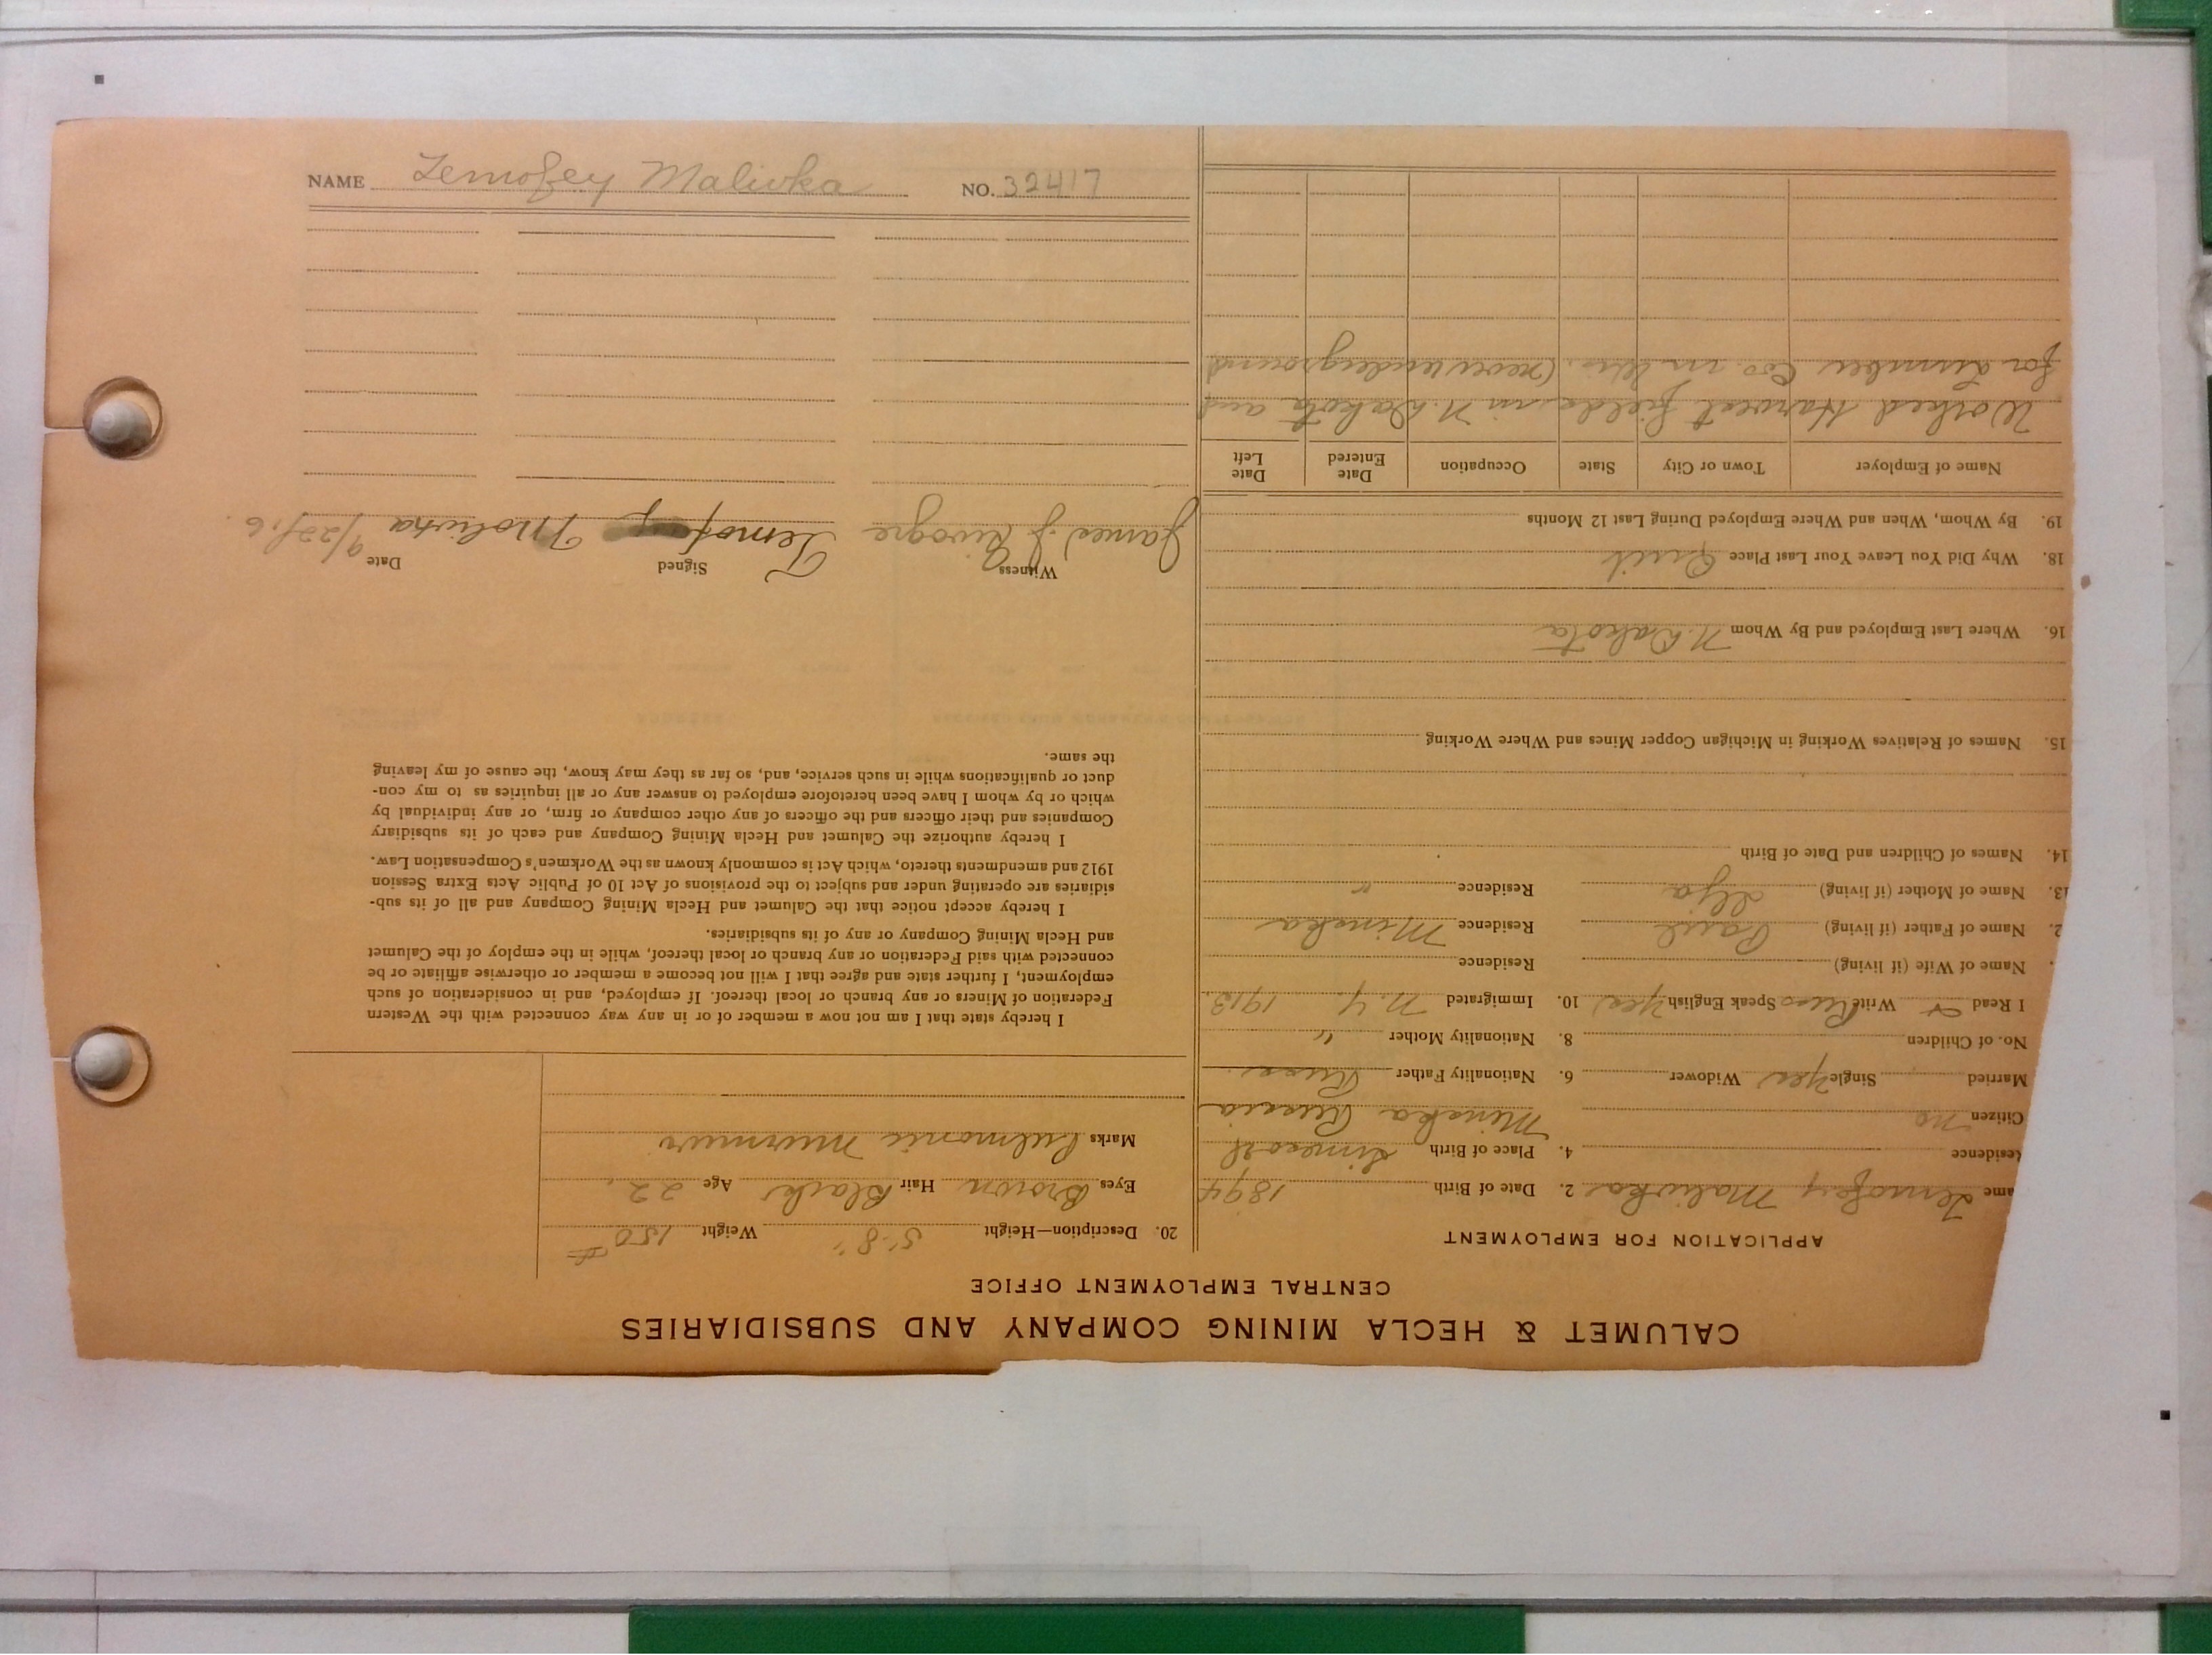 NAME Zemofey Malivka NO. 32417
CALUMET & HECLA MINING COMPANY AND SUBSIDIARIES
CENTRAL EMPLOYMENT OFFICE
APPLICATION FOR EMPLOYMENT
ame Zemofey Malivka 2. Date of Birth 1894
Residence 4. Place of Birth
Citizen no Minska Russia
Married Single Yes Widower 6. Nationality Father Russ.
No. of Children 8. Nationality Mother "
I Read Write Russ Speak English Yes 10. Immigrated N.Y. 1913
. Name of Wife (if living) Residence
2. Name of Father (if living) Paul Residence Minska
13. Name of Mother (if living) Residence "
14. Names of Children and Date of Birth
15. Names of Relatives Working in Michigan Copper Mines and Where Working
16. Where Last Employed and By Whom N. Dakota
18. Why Did You Leave Your Last Place Quit
19. By Whom, When and Where Employed During Last 12 Months
Name of Employer Town or City State Occupation Date Entered Date Left
Worked Harvest fields in N. Dakota and
for Lumber Co. in (never underground
20. Description—Height 5' 8" Weight 150 #
Eyes Brown Hair Black Age 22
Marks Pulmonic Murmur
I hereby state that I am not now a member of or in any way connected with the Western
Federation of Miners or any branch or local thereof. If employed, and in consideration of such
employment, I further state and agree that I will not become a member or otherwise affiliate or be
connected with said Federation or any branch or local thereof, while in the employ of the Calumet
and Hecla Mining Company or any of its subsidiaries.
I hereby accept notice that the Calumet and Hecla Mining Company and all of its sub-
sidiaries are operating under and subject to the provisions of Act 10 of Public Acts Extra Session
1912 and amendments thereto, which Act is commonly known as the Workmen's Compensation Law.
I hereby authorize the Calumet and Hecla Mining Company and each of its subsidiary
Companies and their officers and the officers of any other company or firm, or any individual by
which or by whom I have been heretofore employed to answer any or all inquiries as to my con-
duct or qualifications while in such service, and, so far as they may know, the cause of my leaving
the same.
Witness Signed Date
James J. Temofey Molivka 9/22/16